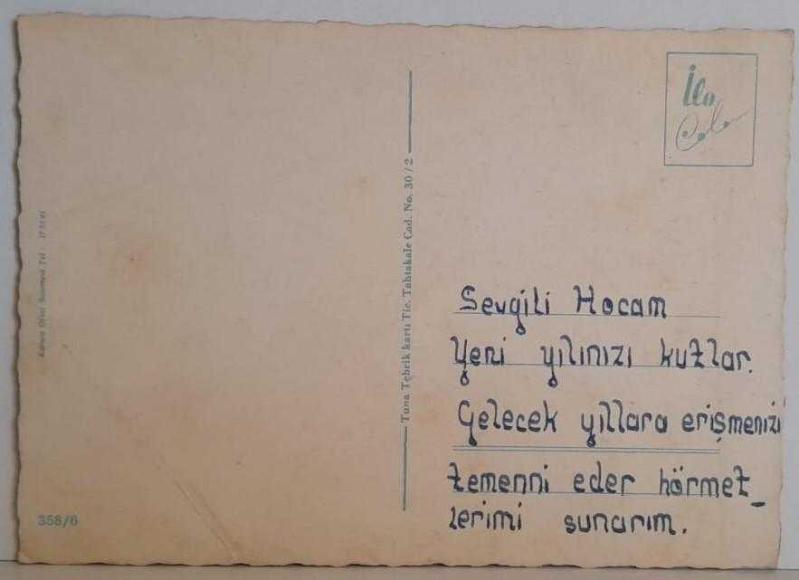 İlo
Color
Tuna Tebrik kartı Tic. Tahtakale Cad. No. 30/2
Sevgili Hocam
Yeni yılınızı kutlar.
Gelecek yıllara erişmenizi
temenni eder hörmet_
lerimi sunarım.
358/6